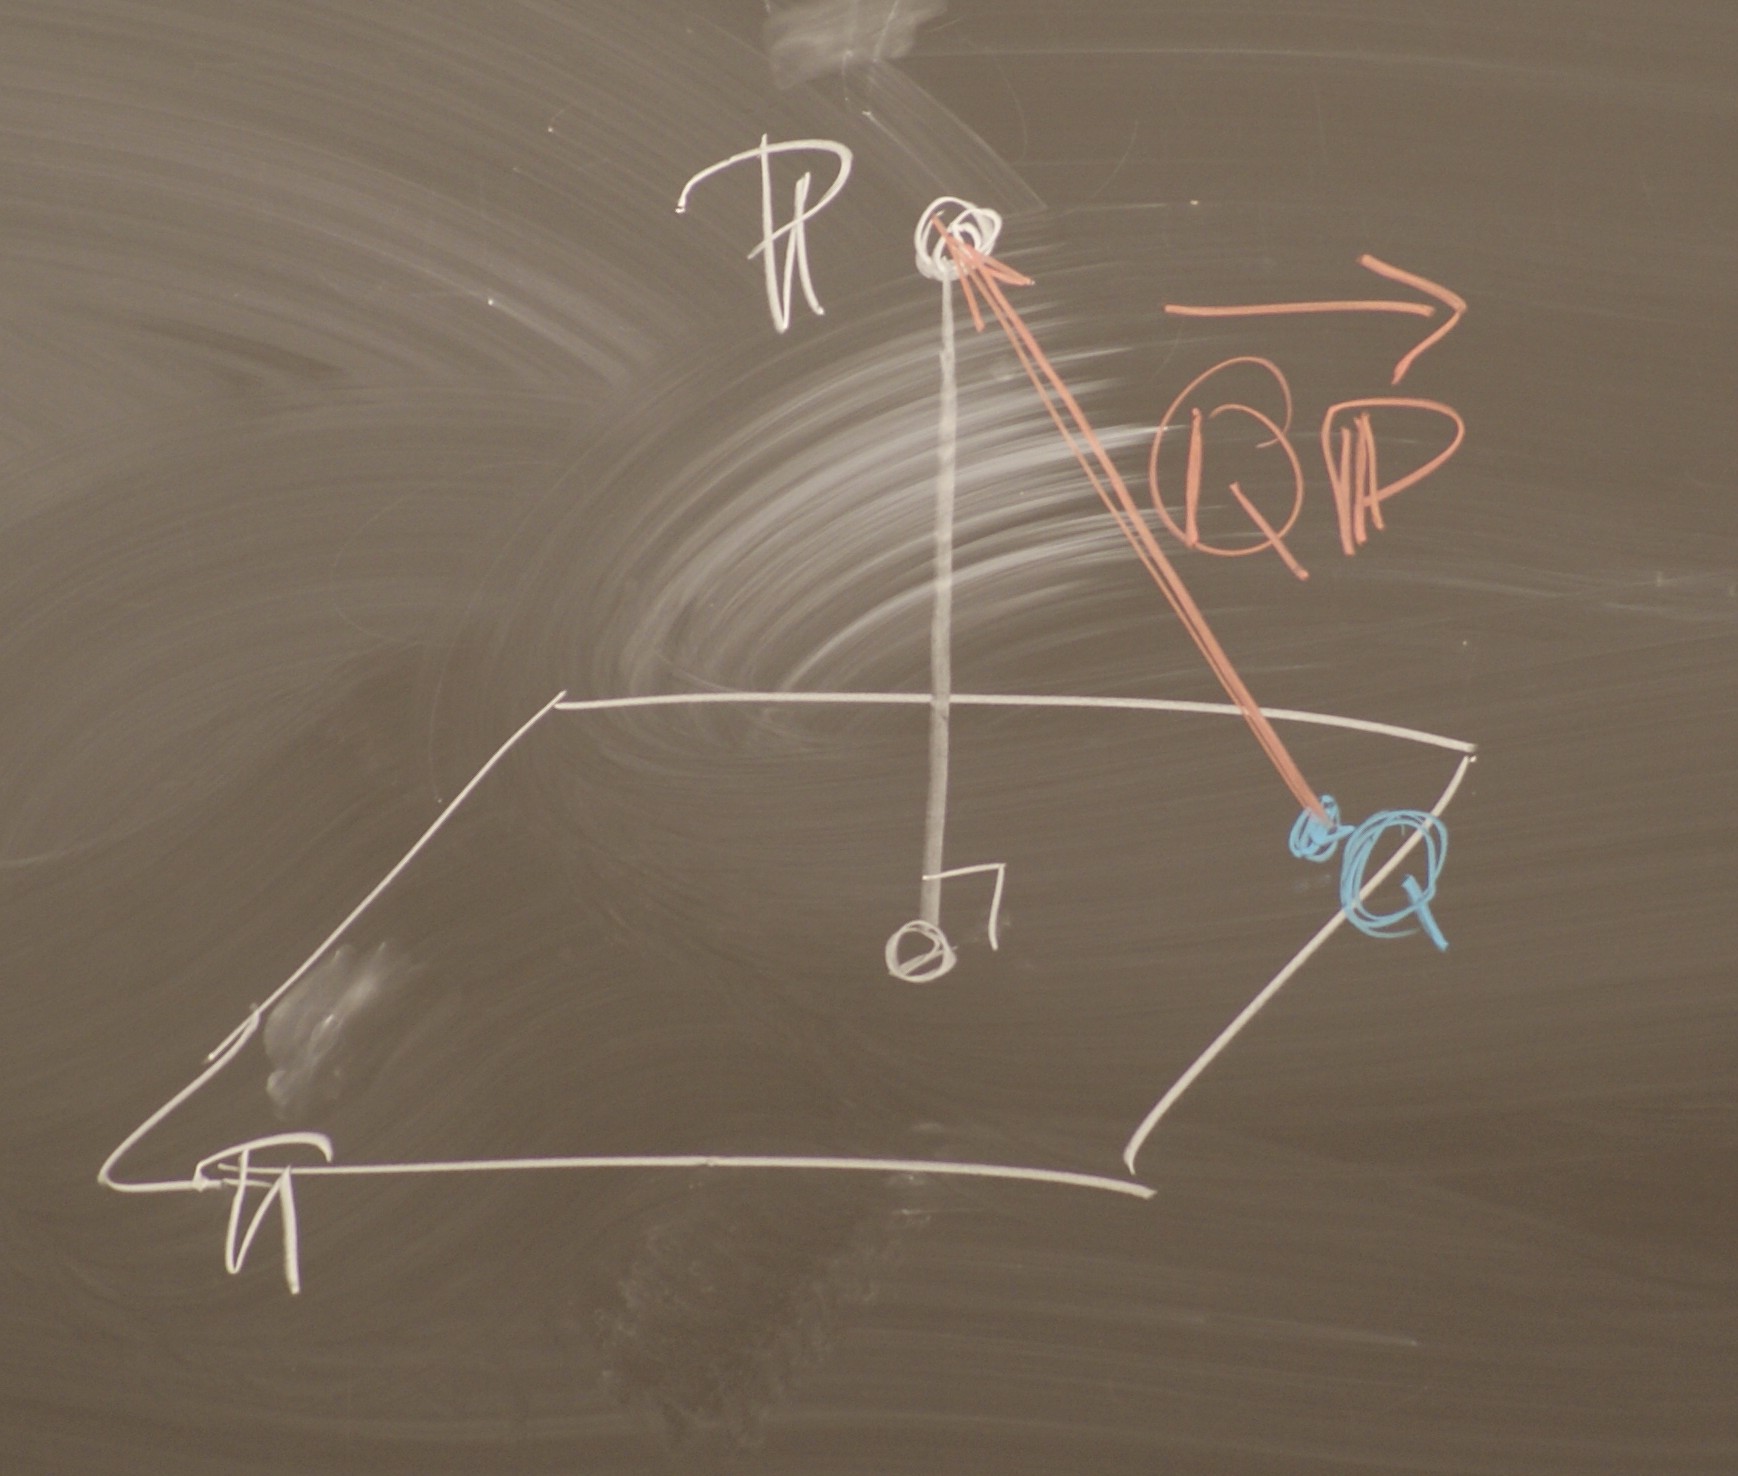 P
QP
Q
π